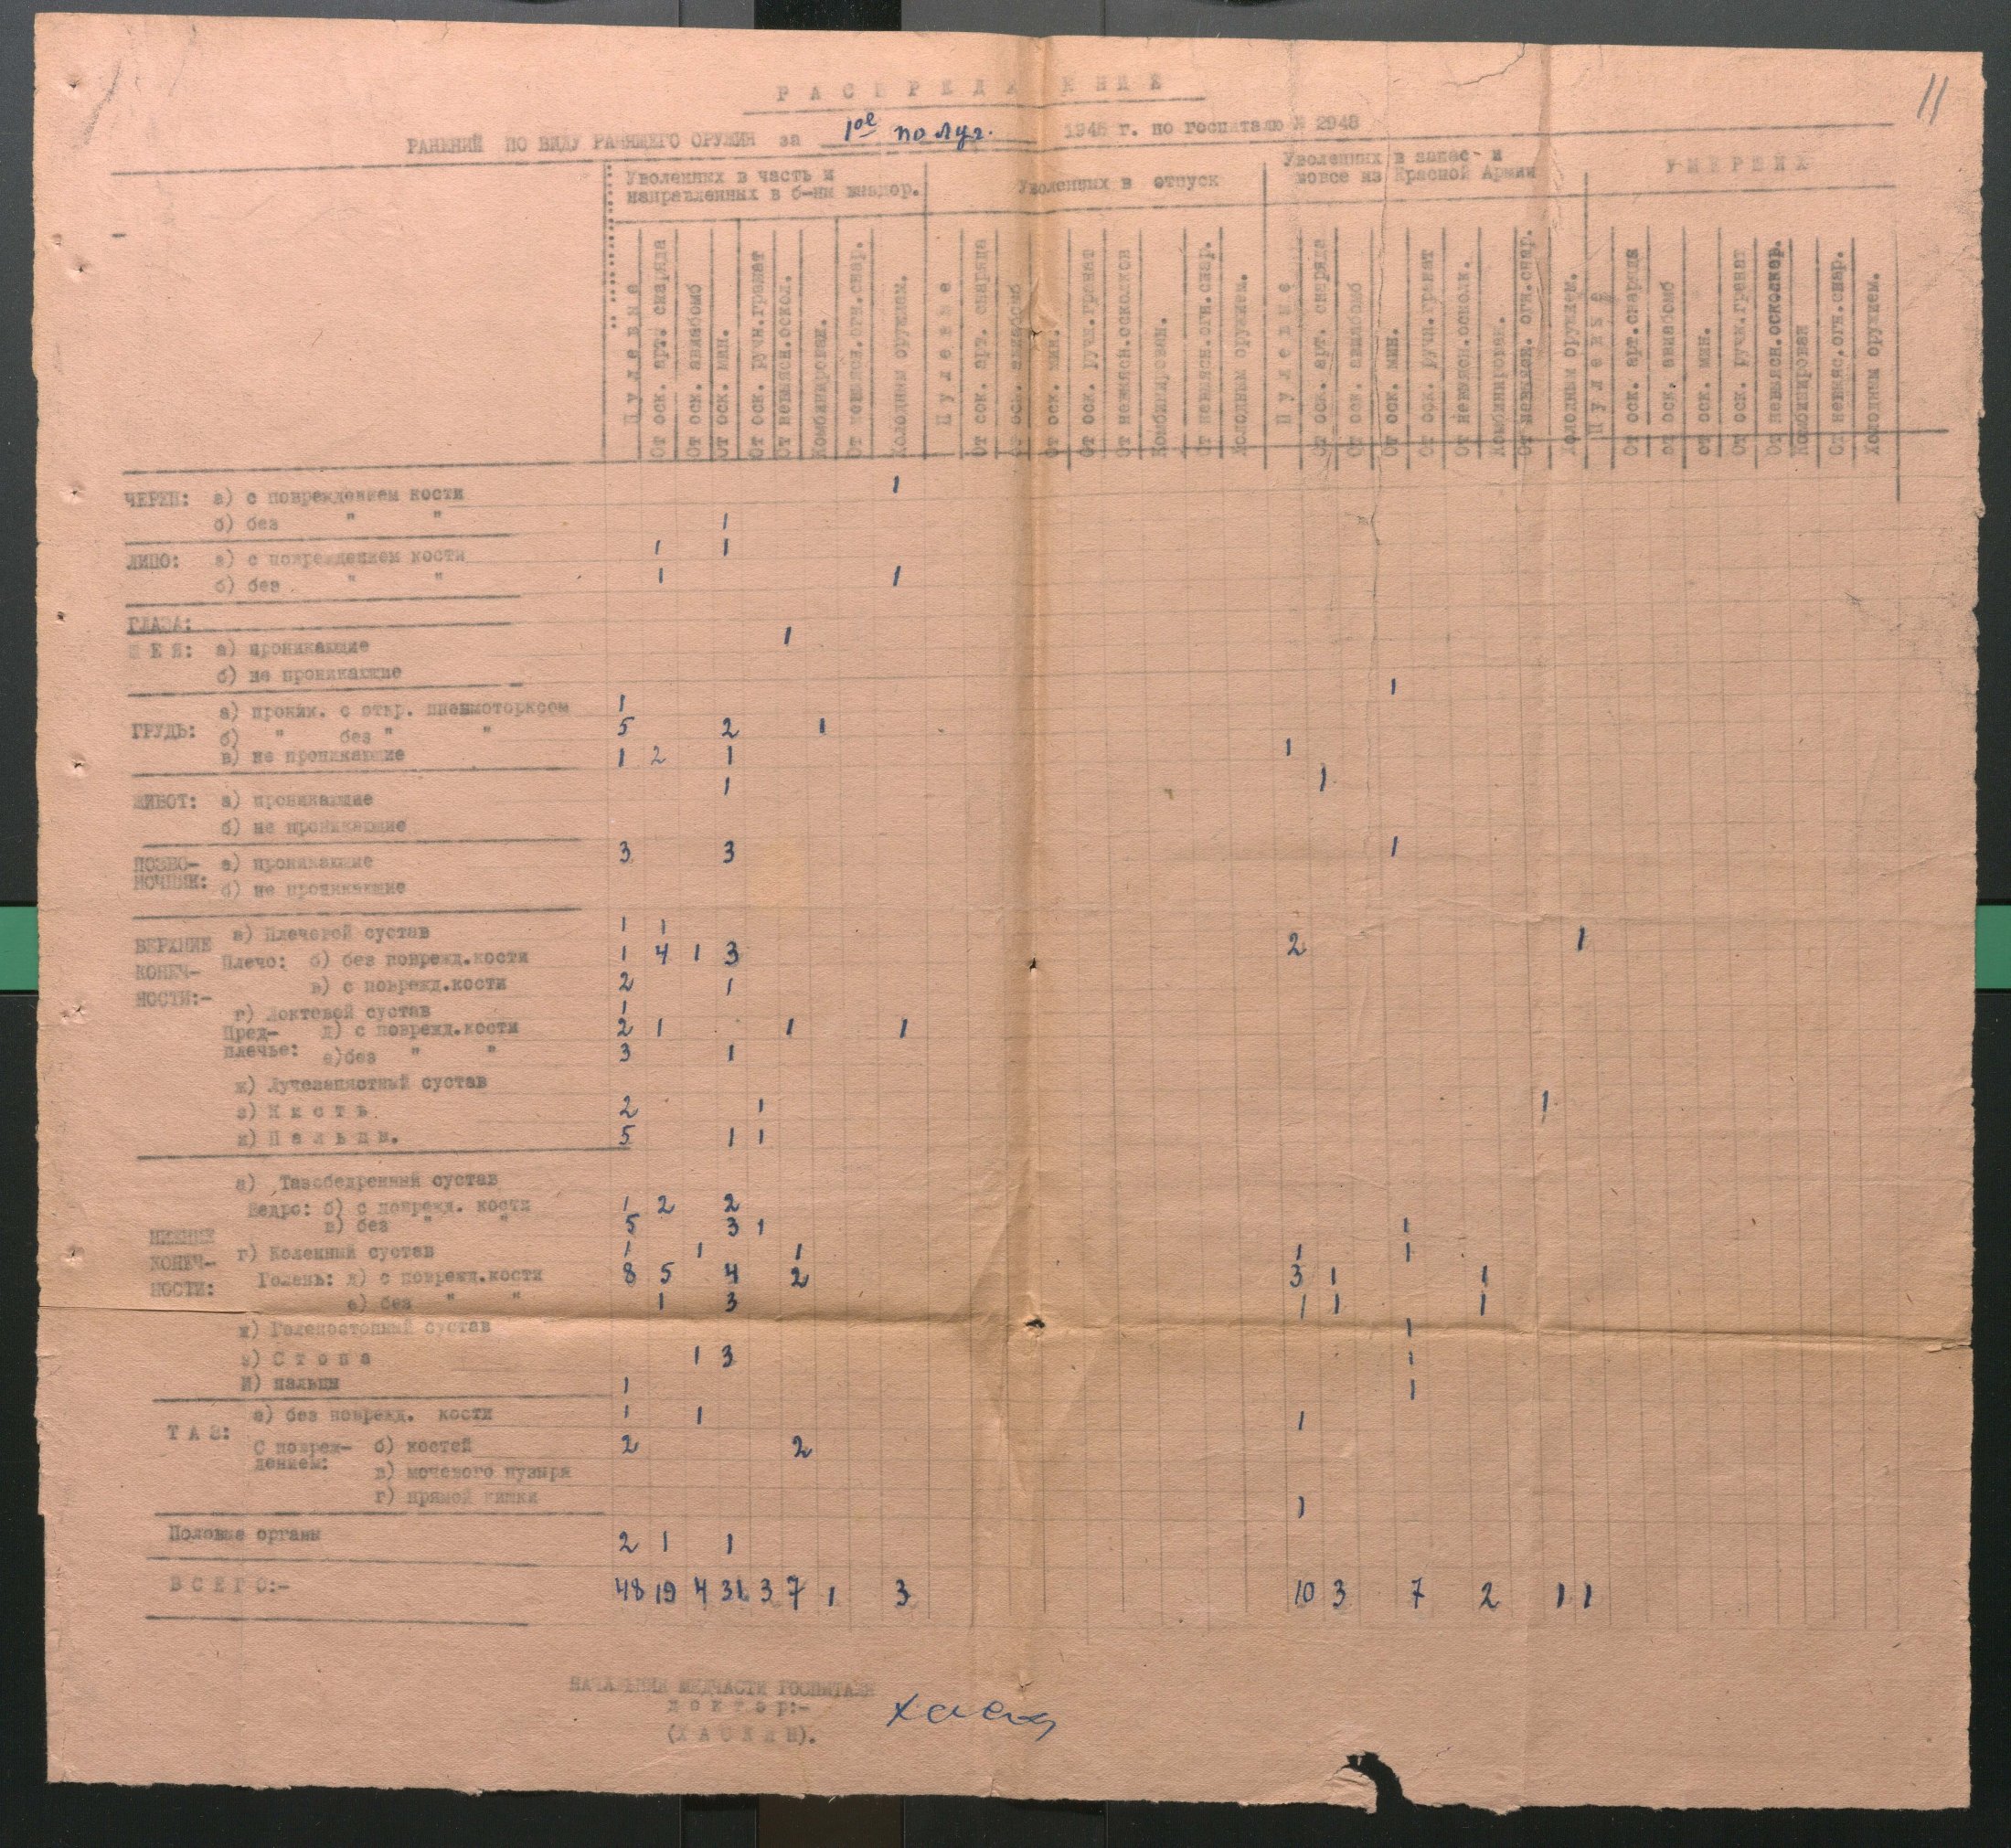 11
РАСПРЕДЕЛЕНИЕ
РАНЕНИЙ ПО ВИДУ РАНЯЩЕГО ОРУЖИЯ за 1ое полуг. 1945 г. по госпиталю № 2948
Уволенных в часть и направленных в б-ны выздор.
Уволенных в отпуск
Уволенных в запас и вовсе из Красной Армии
УМЕРШИХ
Пулевые
От оск. арт. снаряда
От оск. авиабомб
От оск. мин.
От оск. ручн.гранат
От невыясн.оскол.
Комбинирован.
От невыясн.огн.снар.
Холодным оружием.
Пулевые
От оск. арт. снаряда
От оск. авиабомб
От оск. мин.
От оск. ручн.гранат
От невыясн.осколков
Комбинирован.
От невыясн.огн.снар.
Холодным оружием.
Пулевые
От оск. арт. снаряда
От оск. авиабомб
От оск. мин.
От оск. ручн.гранат
От невыясн.осколк.
Комбинирован.
От невыясн. огн.снар.
Холодным оружием.
Пулевые
От оск. арт.снаряда
от оск. авиабомб
от оск. мин.
От оск. ручн.гранат
От невыясн.осколкар.
Комбинирован
От невыяс.огн.снар.
Холодным оружием.
ЧЕРЕП: а) с повреждением кости 1
б) без " " 1
ЛИЦО: а) с повреждением кости 1 1
б) без " " 1 1
ГЛАЗА:
ШЕЯ: а) проникающие 1
б) не проникающие 1
ГРУДЬ: а) проник. с откр. пневмоторксом 1
б) " без " " 5 2 1
в) не проникающие 1 2 1 1
ЖИВОТ: а) проникающие 1 1
б) не проникающие
ПОЗВО-НОЧНИК: а) проникающие 3 3 1
б) не проникающие
ВЕРХНИЕ КОНЕЧ-НОСТИ:-
а) Плечевой сустав 1 1
Плечо: б) без поврежд.кости 1 4 1 3 2 1
в) с поврежд.кости 2 1
г) Локтевой сустав 1
Пред-плечье: д) с поврежд.кости 2 1 1 1
е)без " " 3 1
ж) Лучезапястный сустав
з) Кисть 2 1 1
и) Пальцы. 5 1 1
НИЖНИЕ КОНЕЧ-НОСТИ:
а) Тазобедренный сустав
Бедро: б) с поврежд. кости 1 2 2
в) без " " 5 3 1 1
г) Коленный сустав 1 1 1 1 1
Голень: д) с поврежд.кости 8 5 4 2 3 1 1
е) без " " 1 3 1 1 1
ж) Голеностопный сустав 1
з) Стопа 1 3 1
и) пальцы 1 1
ТАЗ: а) без поврежд. кости 1 1 1
С повреж-дением: б) костей 2 2
в) мочевого пузыря
г) прямой кишки 1
Половые органы 2 1 1
ВСЕГО:- 48 19 4 31 3 7 1 3 10 3 7 2 1 1
НАЧАЛЬНИК МЕДЧАСТИ ГОСПИТАЛЯ
доктор:-
(ХАСКИН).